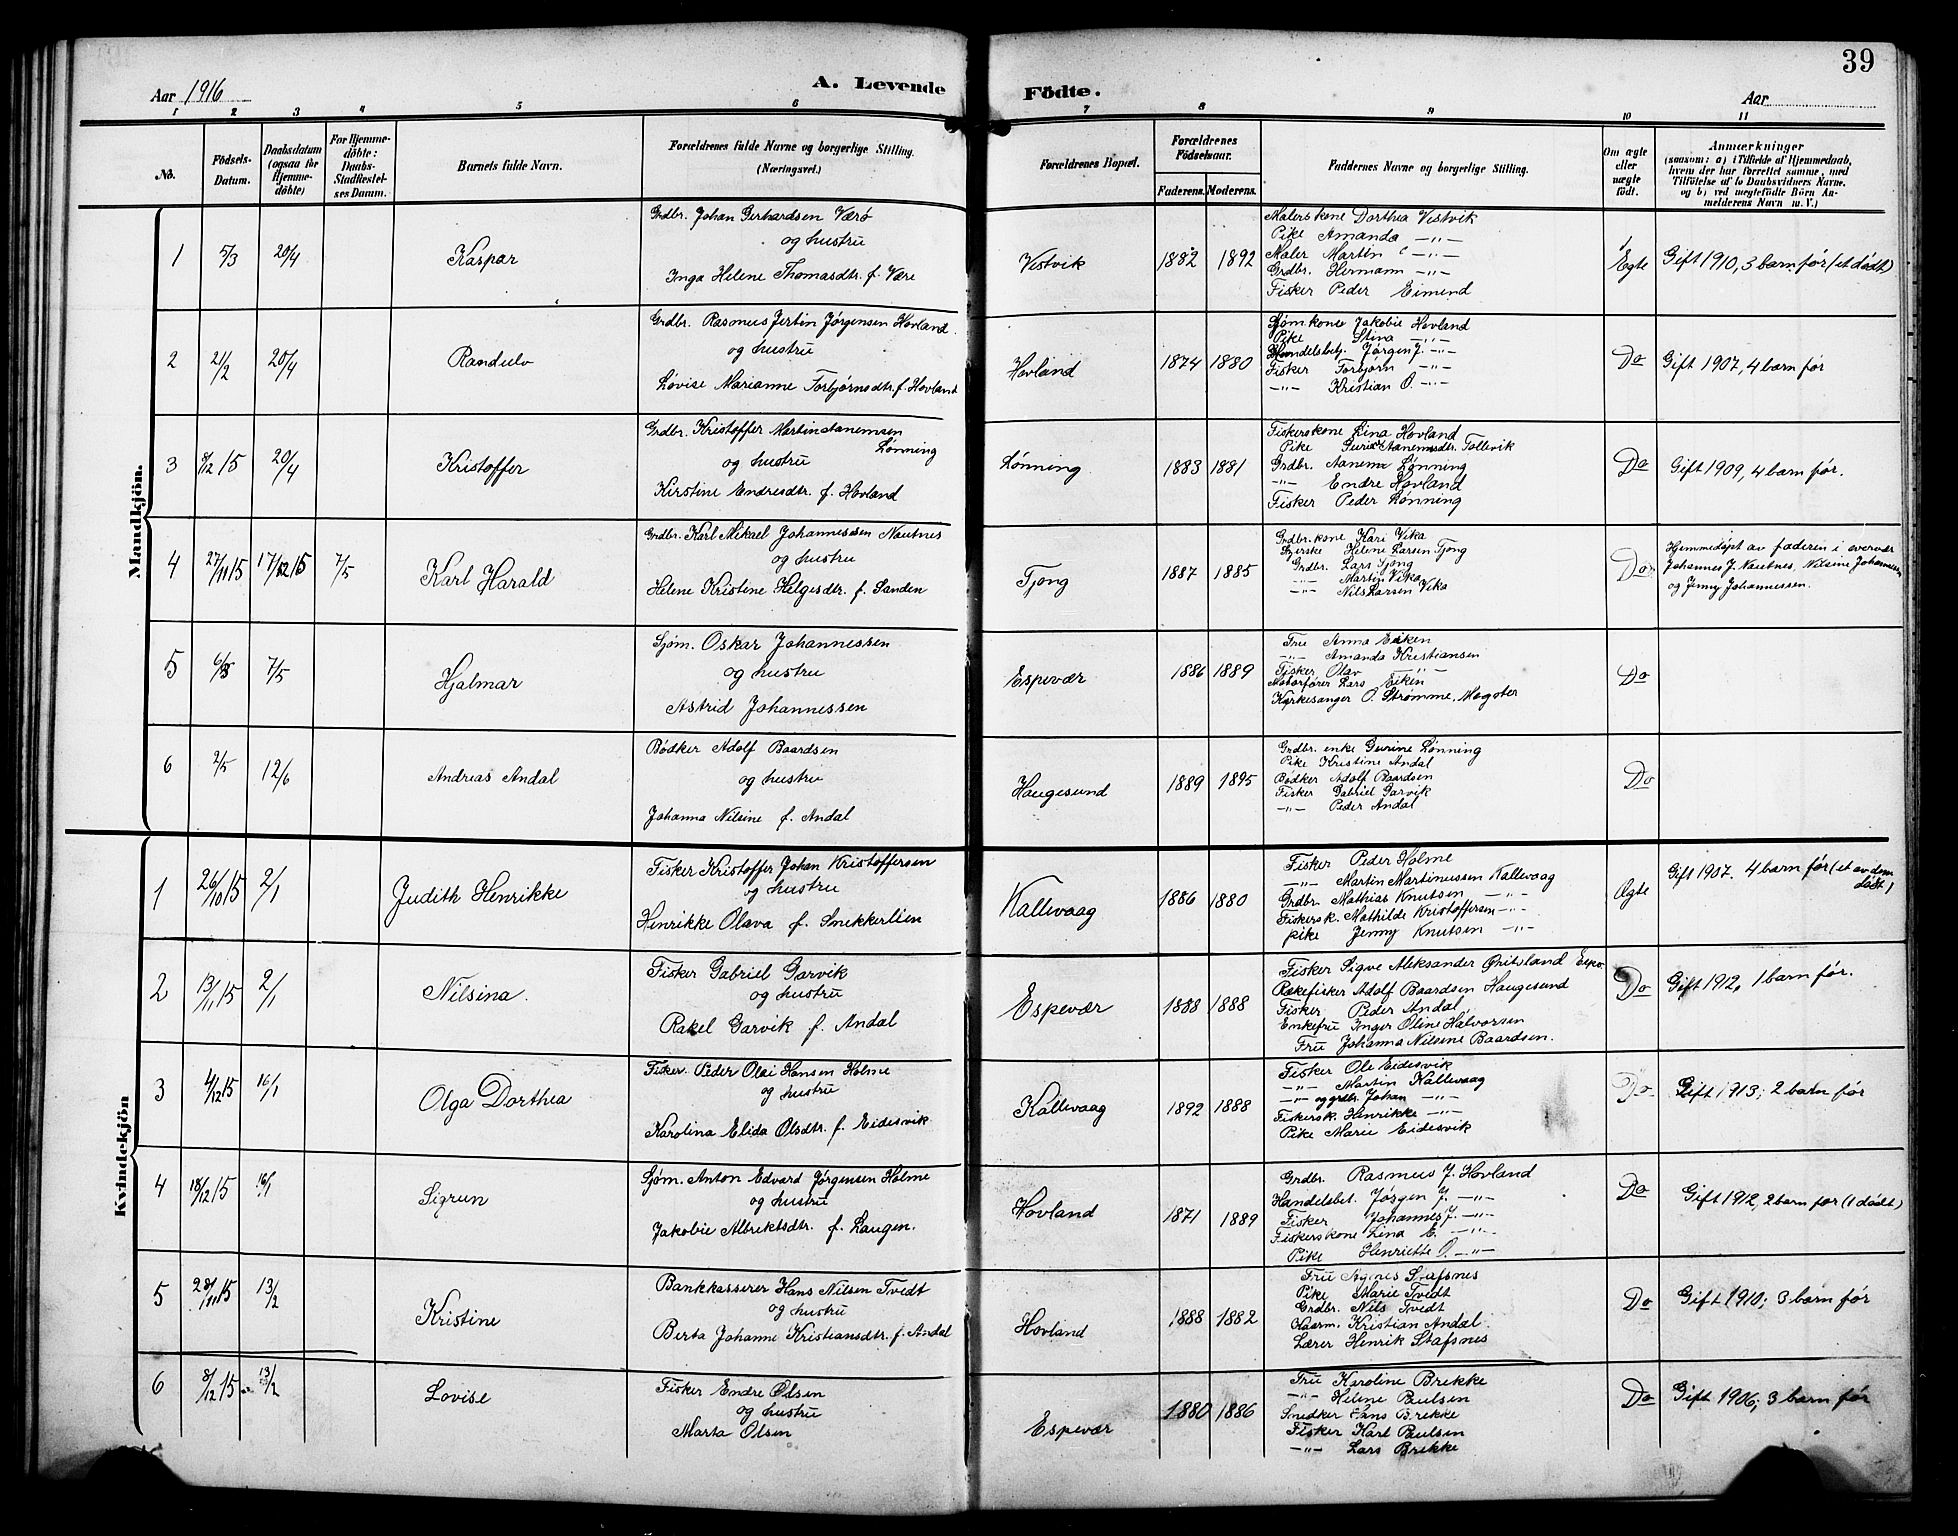 39
Aar 1916
A. Levende Födte.
Aar
1 2 3 4 5 6 7 8 9 10 11
No.
Födsels-Datum.
Daabsdatum (ogsaa for Hjemmedöbte)
For Hjemmedöbte: Daabs-Stadfæstelses Datum.
Barnets fulde Navn.
Forældrenes fulde Navne og borgerlige Stilling. (Næringsvei.)
Forældrenes Bopæl.
Forældrenes Födselsaar.
Faderens. Moderens.
Faddernes Navne og borgerlige Stilling.
Om ægte eller uægte födt.
Anmærkninger
(saasom: a) i Tilfælde af Hjemmedaab,
hvem der har forrettet samme, med
Tilföielse af to Daabsvidners Navne,
og b) ved uegtefödte Börn An-
melderens Navn m. V.)
Mandkjön.
1 5/3 20/4 Kaspar
Grdbr. Johan Gerhardsen Værø
og hustru
Inga Helene Thomasdtr. f. Være
Vestvik 1882 1892
Malerskone Dorthea Vestvik
Pike Amanda —"—
Maler Martin —"—
Grdbr. Hermann —"—
Fisker Peder Eimend
Egte Gift 1910, 3 barn før (et dødt)
2 21/2 20/4 Randulv
Grdbr. Rasmus Jertin Jørgensen Hovland.
og hustru
Lovise Marianne Torbjørnsdtr. f. Hovland
Hovland 1874 1880
Sjøm.kone Jakobie Hovland
Pike Stina —"—
Handelsbetj. Jørgen J. —"—
Fisker Torbjørn —"—
—"— Kristian O. —"—
Do Gift 1907, 4 barn før
3 8/12 15 20/4 Kristoffer
Grdbr. Kristoffer Martin Aanensen
Lønning
og hustru
Kirstine Endresdtr. f. Hovland
Lønning 1883 1881
Fiskerskone Lina Hovland
Pike Guri Aanensdtr. Tollevik
Grdbr. Aanen Lønning
—"— Endre Hovland
Fisker Peder Lønning
Do Gift 1909, 4 barn før.
4 27/11 15 17/12 15 7/5 Karl Harald
Grdbr. Karl Mikael Johannessen Nautnes
og hustru
Helene Kristene Helgesdtr. f. Sanden
Tjong 1887 1885
Grdbr.kone Kari Vika
Helene Larsen Tjong
Grdbr. Lars Tjong
—"— Martin Vika
—"— Nils Larsen Vika
Do
Hjemmedøpt av faderen i overvær
Johannes J. Nautnes, Nilsine Johannessen
og Jenny Johannessen.
5 6/3 7/5 Hjalmar
Sjøm. Oskar Johannessen
og hustru
Astrid Johannessen
Espevær 1886 1889
Fru Anna Eiken
—"— Amanda Kristiansen
Fisker Olav —"—
Motorfører Lars Eiken
Kirkesanger O. Strømme, Mogster
Do
6 2/5 12/6 Andreas Andal
Bødker Adolf Baardsen
og hustru
Johanna Nilsine f. Andal
Haugesund 1889 1895
Grdbr. enke Gurine Lønning
Pike Kristine Andal
Bødker Adolf Baardsen
Fisker Gabriel Garvik
—"— Peder Andal
Do
Kvindekjön
1 26/10 15 2/1 Judith Henrikke
Fisker Kristoffer Johan Kristoffersen
og hustru
Henrikke Olava f. Snekkerlien
Kallevaag 1886 1880
Fisker Peder Holme
—"— Martin Martinussen Kallevaag
Grdbr. Mathias Knutsen —"—
Fiskersk. Mathilde Kristoffersen —"—
Pike Jenny Knutsen —"—
Ægte Gift 1907. 4 barn før (et av dem
dødt)
2 13/11 15 2/1 Nilsina.
Fisker Gabriel Garvik
og hustru
Rakel Garvik f. Andal
Espevær 1888 1888
Fisker Sigve Aleksander Ønitsland Espv.
Rækefisker Adolf Baardsen Haugesund
Fisker Peder Andal
Enkefru Inger Oline Halvorsen
Fru Johanna Nilsine Baardsen.
Do Gift 1912, 1 barn før.
3 4/12 15 16/1 Olga Dorthea
Fisker Peder Olai Hansen Holme
og hustru
Karolina Elida Olsdtr. f. Eidesvik
Kallevaag 1892 1888
Fisker Ole Eidesvik
—"— Martin Kallevaag
—"— og grdbr. Johan —"—
Fiskersk. Henrikke —"—
Pike Marie Eidesvik
Do Gift 1913; 2 barn før
4 18/12 15 16/1 Sigrun
Sjøm. Anton Edvard Jørgensen Holme
og hustru
Jakobie Albrektsdtr. f. Laugen.
Hovland 1871 1889
Grdbr. Rasmus J. Hovland
Handelsbet. Jørgen J. —"—
Fisker Johannes J. —"—
Fiskerskone Lina E. —"—
Pike Henriette O. —"—
Do Gift 1912, 2 barn før (1 dødt)
5 28/11 15 13/2 Kristine
Bankkasserer Hans Nilsen Tvedt
og hustru
Berta Johanne Kristiansdtr. f. Andal
Hovland 1888 1882
Fru Agnes Stafsnes
Pike Marie Tvedt
Grdbr. Nils Tvedt
Kristian Andal.
Lærer Henrik Stafsnes
Do Gift 1910; 3 barn før
6 8/12 15 13/2 Lovise
Fisker Endre Olsen
og hustru
Marta Olsen
Espevær 1880 1886
Fru Karoline Brekke
—"— Helene Paulsen
Snedker Hans Brekke
Fisker Karl Paulsen
—"— Lars Brekke
Do Gift 1906; 3 barn før